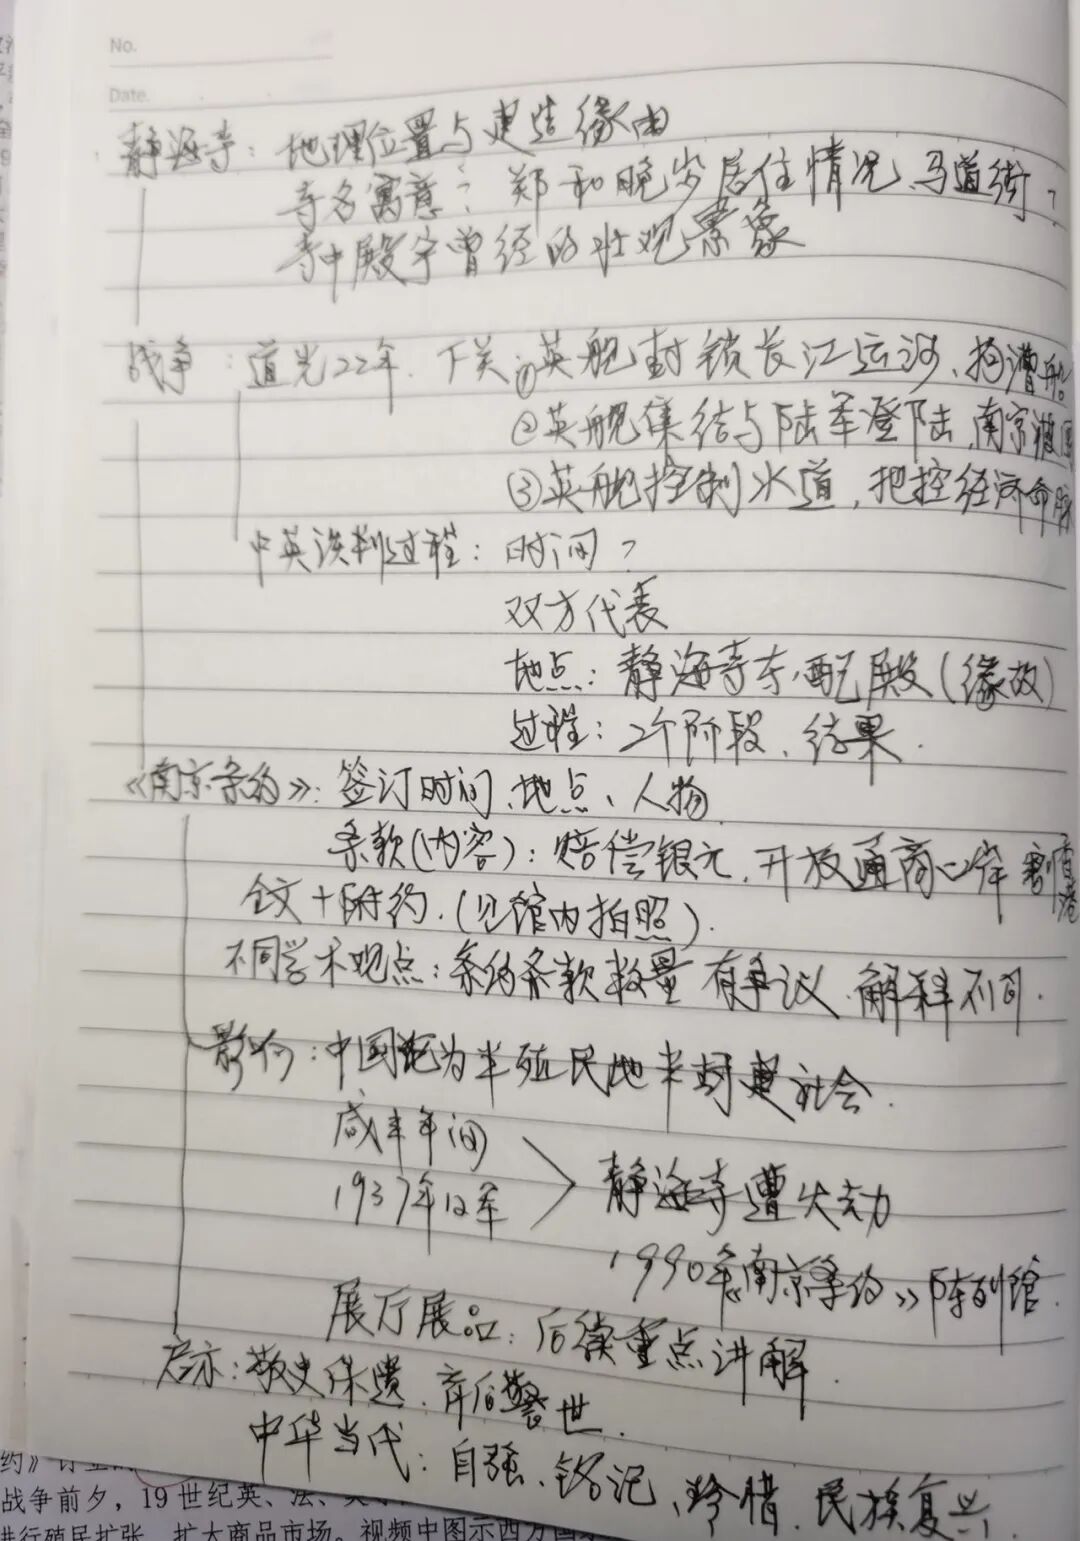 No.
Date.
静海寺：地理位置与建造缘由
寺名寓意？郑和晚年居住情况、马道街？
寺中殿宇曾经的壮观景象
战争：道光22年．下关①英舰封锁长江运河、扬漕船
②英舰集结与陆军登陆，南京被围
③英舰控制水道，把控经济命脉
中英谈判过程：时间？
双方代表
地点：静海寺东配殿(缘故)
过程：2个阶段、结果．
《南京条约》：签订时间、地点、人物
条款(内容)：赔偿银元，开放通商口岸 割香港
全文+附约．(见馆内拍照)．
不同学术观点：条约条款数量有争议．解释不同．
影响：中国沦为半殖民地半封建社会．
咸丰年间
1937年日军
静海寺遭火劫
1990年《南京条约》陈列馆．
展厅展品：后续重点讲解．
启示：敬史保遗．弃后警世．
中华当代：自强、铭记、珍惜．民族复兴．
战争前夕，19世纪英、法、
进行殖民扩张、扩大商品市场。视频中图示西方国